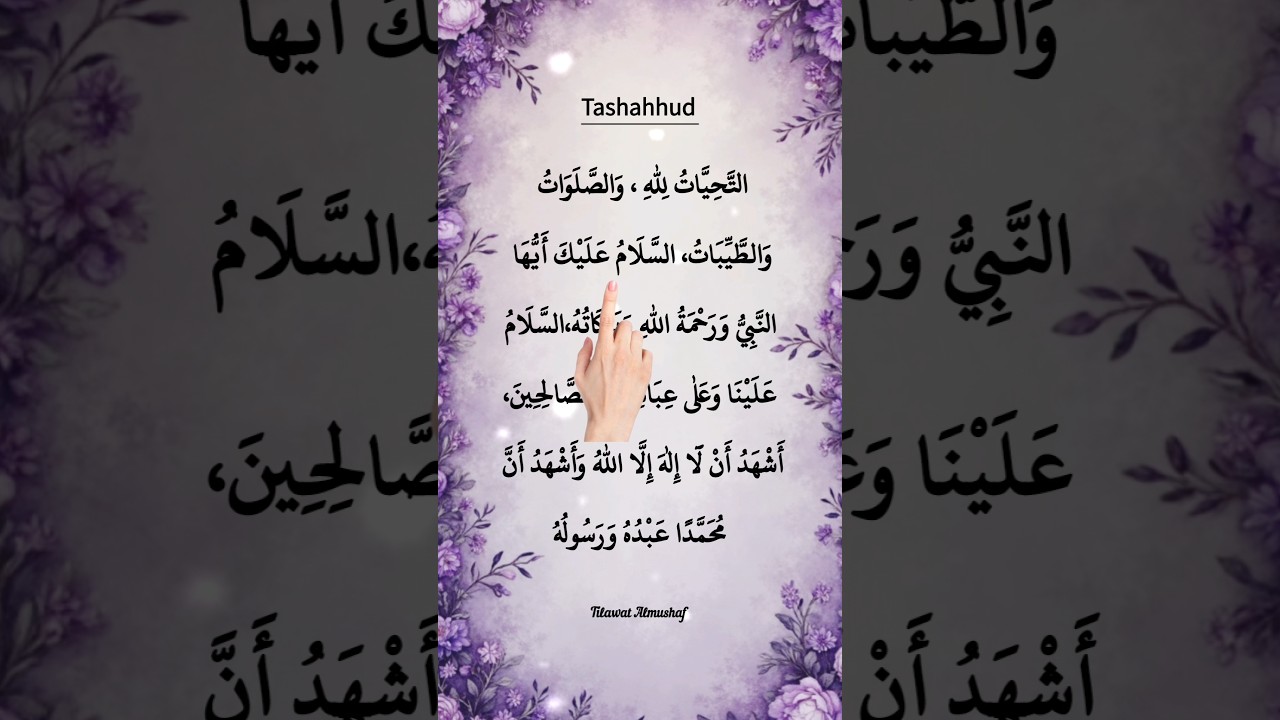 Tashahhud
التَّحِيَّاتُ لِلّٰهِ ، وَالصَّلَوَاتُ
وَالطَّيِّبَاتُ، السَّلَامُ عَلَيْكَ أَيُّهَا
النَّبِيُّ وَرَحْمَةُ اللّٰهِ ،السَّلَامُ
عَلَيْنَا وَعَلٰى
أَشْهَدُ أَنْ لَّا إِلٰهَ إِلَّا اللّٰهُ وَأَشْهَدُ أَنَّ
مُحَمَّدًا عَبْدُهُ وَرَسُولُهُ
Tilawat Almushaf